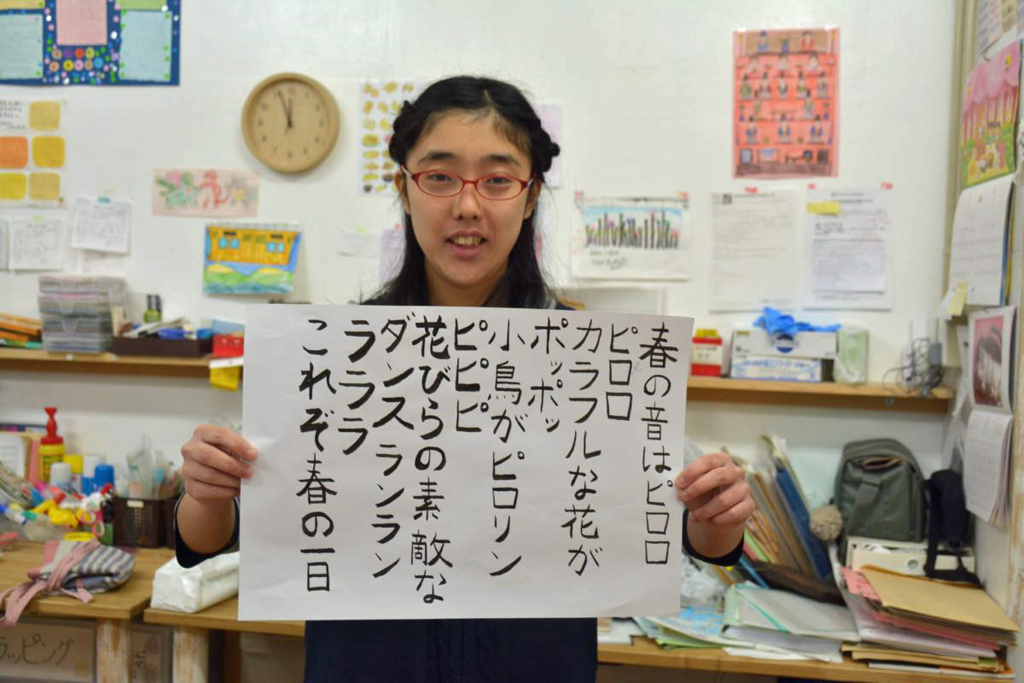 春の音はピロロ
ピロロ
カラフルな花が
ポッポッ
小鳥がピロリン
ピピピ
花びらの素敵な
ダンスランラン
ラララ
これぞ春の一日
ラッピング